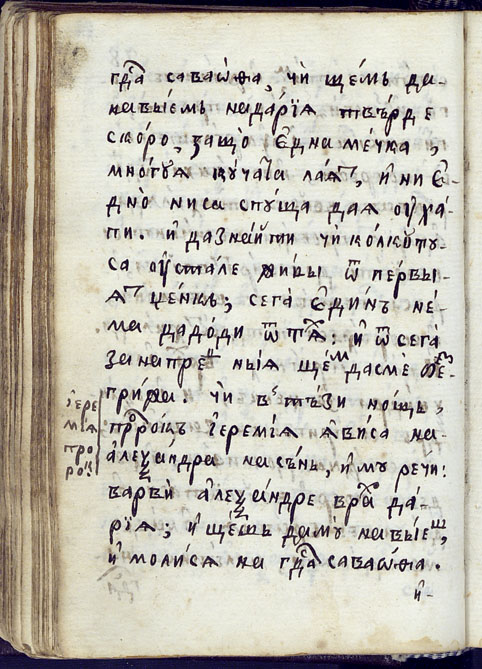 гдⷭ҇а саваѡ́ѳа, чѝ ще́мь да-
навы́емь надарїѧ твъ́рде
ско́ро, защо̀ є҆дна ме́чка,
мно́гѹѧ кѹча́та лаѧⷮ, и҆ ни є҆-
дно̀ ниса спѹ́ща даѧ ѹ҆ха́-
пи. и҆ дазна́йти чи ко́лкото
са ѹ҆стале живы ѿ пе́рвы-
ѧⷮ цѐнкь; сега̀ є҆ди́нь не́-
ма дадо́ди ѿ тѧⷯ: и҆ ѿ сега̀
занапреⷣ ныѧ ще́ⷨ дасмѐ беⷥ
гри́жа. чи въ тъ́зи но́щь,
прⷪ҇ро́къ і҆еремі́ѧ ꙗ҆ви́са на-
але́ѯандра насъ́нь, и҆ мѹ речѝ:
варвѝ але́ѯандре врⷯа̀ да́-
рїѧ, и҆ ще́шь дамѹ̀ навы́еⷲ,
и҆ моли́сѧ на гдⷭ҇а саваѡ́ѳа.
и҆-
і҆ере
мі́ѧ
про
ро́к